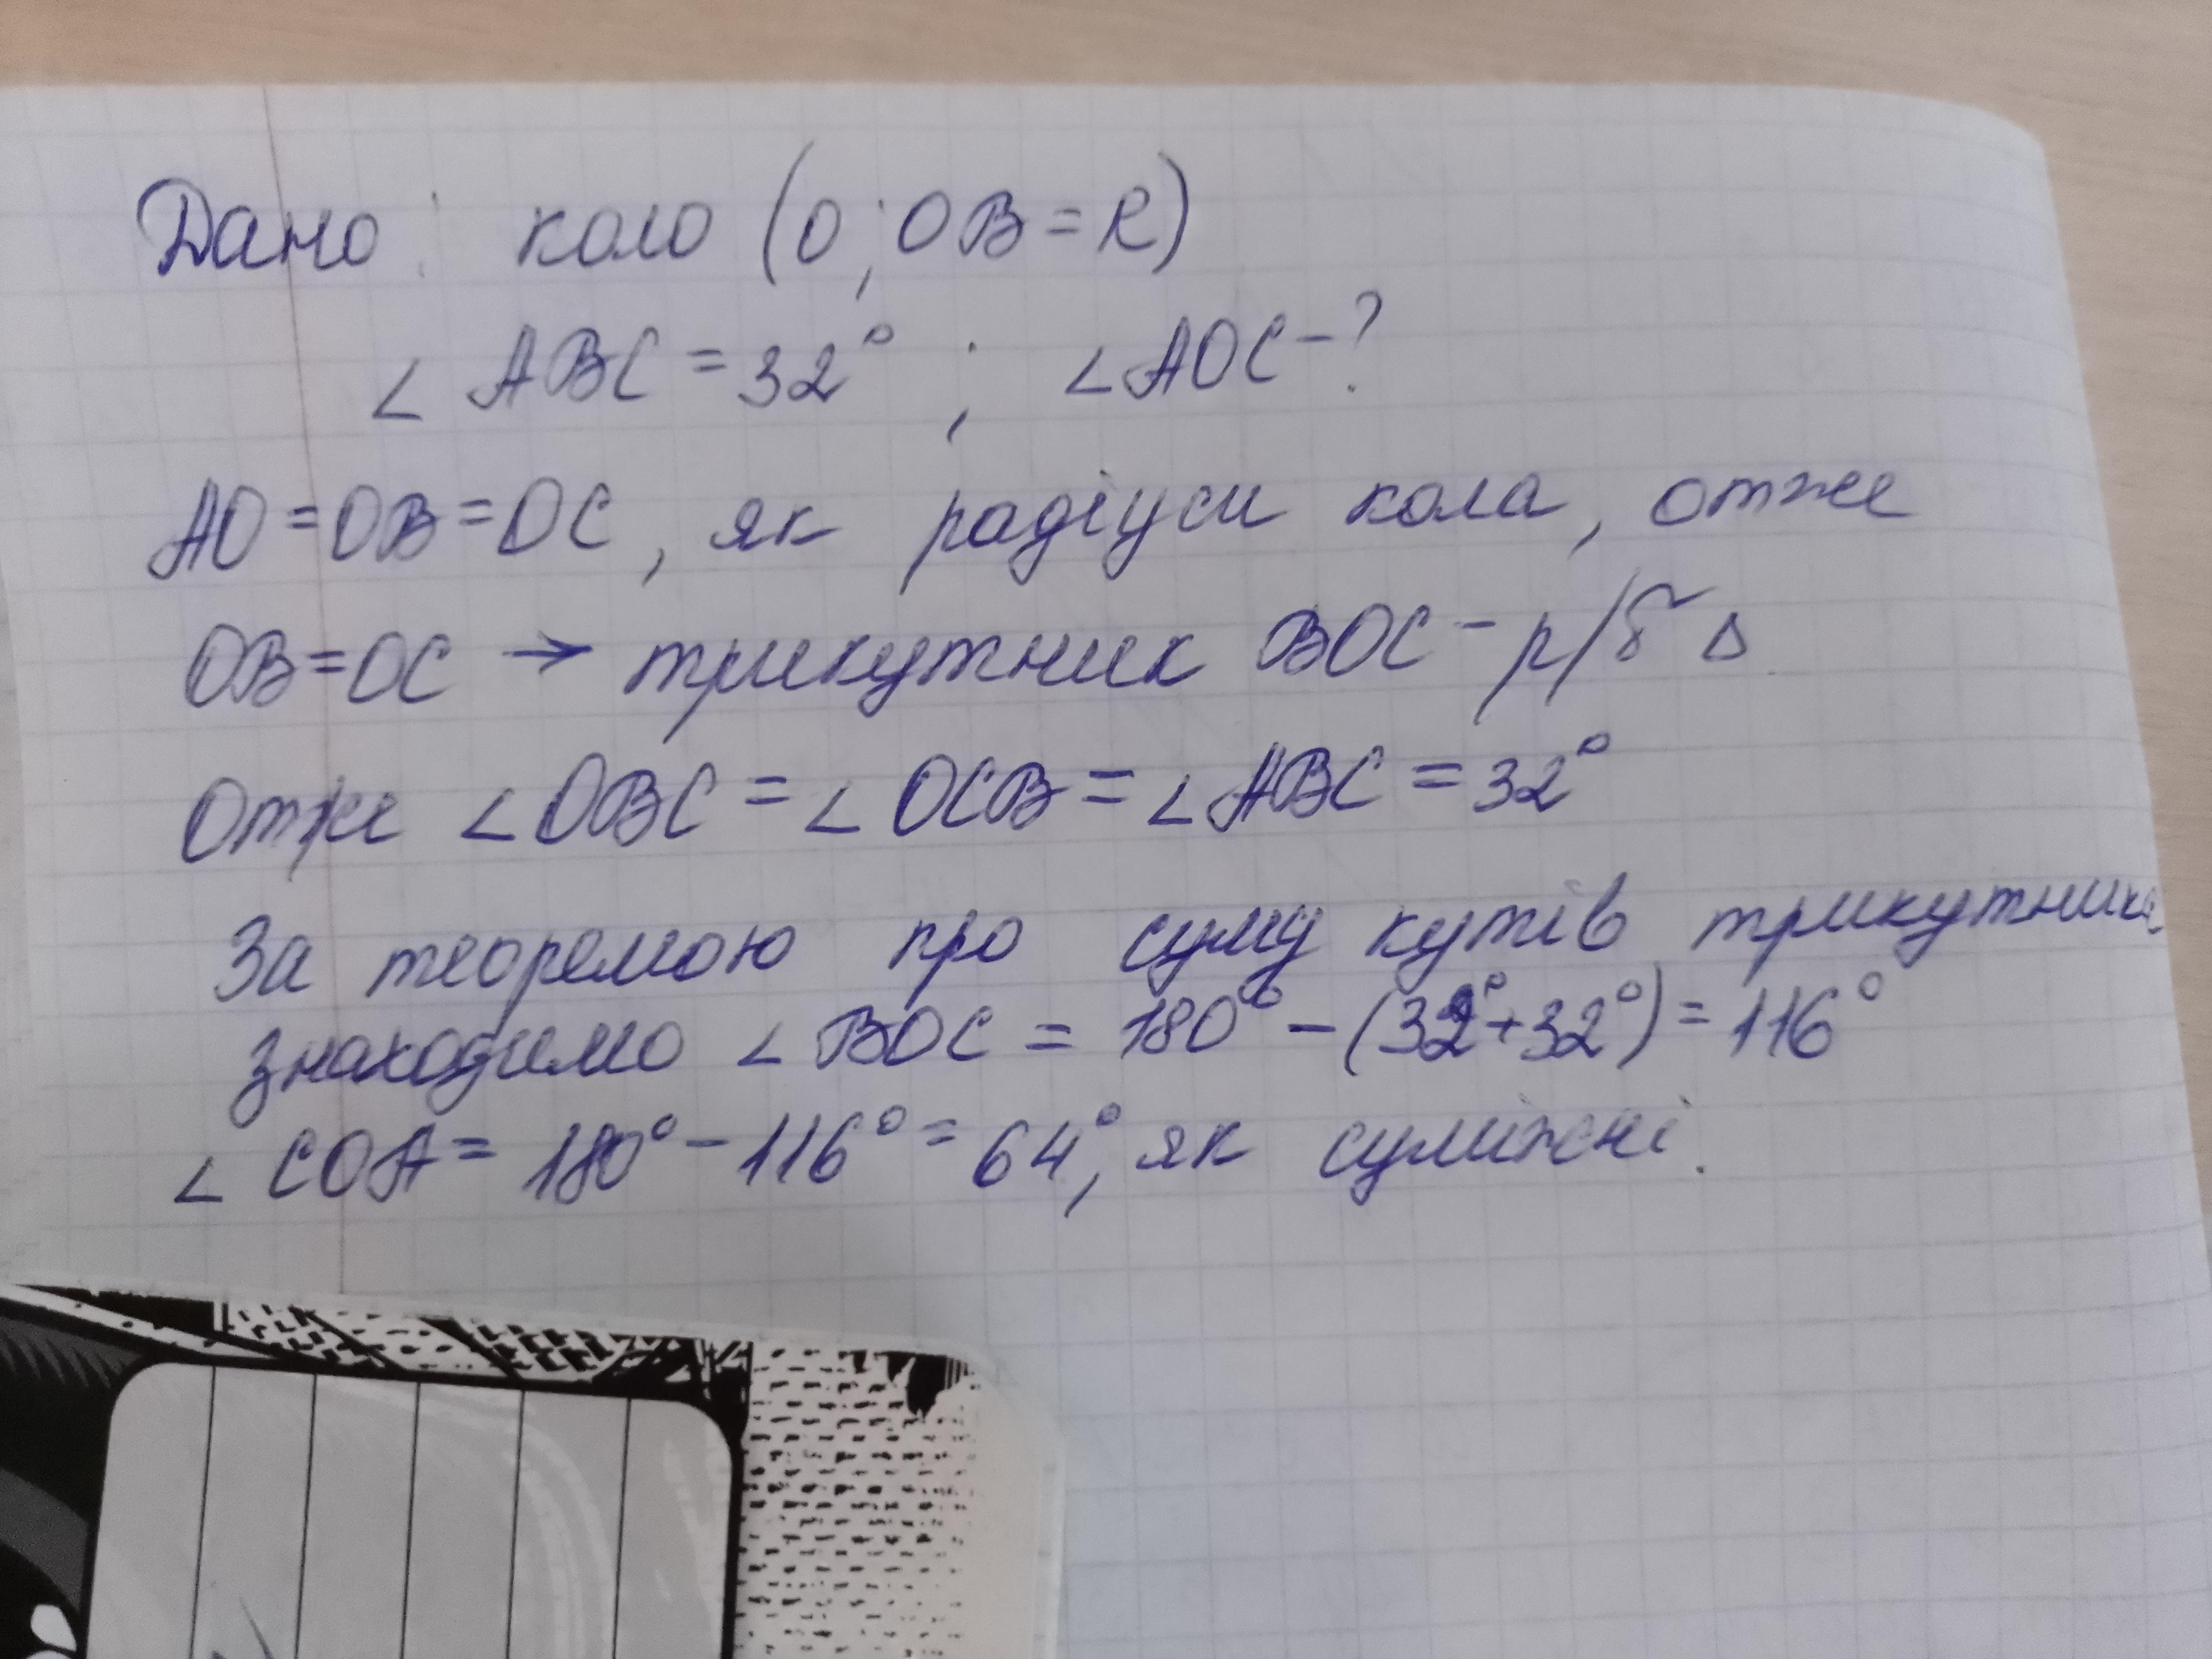 Дано: коло (O; OB = R)
∠ ABC = 32° ; ∠AOC - ?
AO = OB = OC, як радіуси кола, отже
OB = OC → трикутник BOC - р/б Δ.
Отже ∠OBC = ∠OCB = ∠ABC = 32°
За теоремою про суму кутів трикутника
знаходимо ∠BOC = 180° - (32° + 32°) = 116°
∠COA = 180° - 116° = 64°, як суміжні.